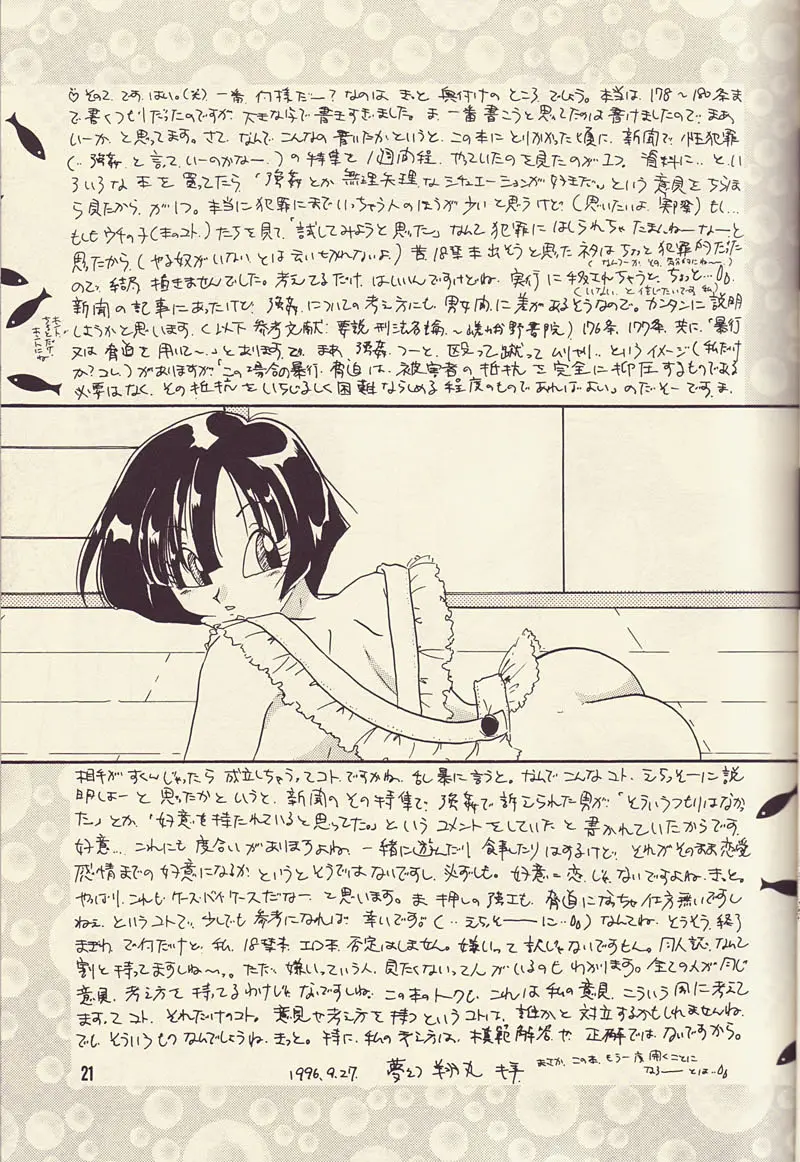 ♡その2.です.はい。(犬) 一番、何様だー?なのは きっと 奥付けの ところ でしょう。本当は. 178〜180条ま
で書くつもりだったのですが. 大きな字で書きすぎました。ま. 一番書こうと思ってたのは書けましたので. まあ
いーか. と思ってます。さて. なんで こんなの書いたかというと. この本にとりかかった頃に. 新聞で. 性犯罪
(‥強姦. と言って.いーのかなー.)の特集を 1週間程. やっていたのを見たのが1つ. 資料に‥と.い
ろいろな 本を 買ってたら. 「強姦とか 無理矢理.な シチュエーションが好きだ.」という 意見を ちらほ
ら見たから. が1つ。本当に 犯罪にまでいっちゃう人のほうが少いと思うけど.(思いたいよ. 実際)もし…
もしもウチの子(本のコト.)たちを見て.「試してみようと思った」なんて 犯罪に はしられちゃ たまんねーなーと
思ったから.(やる奴がいない とは 云いきれないよ.) 昔. 18禁本 出そうと思った ネタは ちょっと 犯罪的だった
ので. 結局. 描きませんでした。考えてるだけ. は.いいんですけどね. 実行に移されちゃうと. ちょっと…
(いない. と 信じたいです.私)
新聞の記事にあったけど. 強姦.についての考え方にも. 男女間に差があるそうなので. カンタンに 説明
しようかと思います.(以下 参考文献: 要説 刑法各論. 〜嵯峨野書院) 176条. 177条. 共に.「暴行
又は 脅迫を 用いて〜.」とあります. まあ. 強姦. つーと. 殴って 蹴って ムリヤリ‥ というイメージ(私だけ
か?コレ.)がありますが「この場合の暴行. 脅迫は. 被害者の 抵抗を 完全に 抑圧するものである
必要はなく. その抵抗を いちじるしく 困難ならしめる 程度のものであればよい」のだそーです.ま.
相手が すくんじゃったら 成立しちゃうってコトですかね. 乱暴に言うと。なんで こんなコト. えらっそーに 説
明しよーと 思ったかというと. 新聞の その特集で. 強姦で 訴えられた男が.「そういうつもりはなか
った」とか.「好意を持たれていると思ってた。」という コメントをしていた と 書かれていたからです.
好意… これにも 度合いがありますよね. 一緒に遊んだり 食事したり はするけど. それがそのまま恋愛
感情までの 好意になるか. というと そうではないですし. 必ずしも。好意=恋. じゃ.ないですよね.きっと。
やっぱり. これも ケースバイケースだなー. て思います。ま. 押しの強さも. 脅迫になっちゃ 仕方無いですし
ねぇ. というコトで. 少しでも 参考になれば. 幸いです。(‥えらっそーーーに‥) なんてね. そうそう. 終了
まぎわ. で何だけど. 私. 18禁本. エロ本. 否定はしません。嫌いって 訳じゃないですもん。同人誌. なんて
割と 持ってますしね〜。 ただ. 嫌いっていう人. 見たくないって人がいるのも わかります。全ての人が同じ
意見. 考え方を 持ってるわけじゃ ないですしね. この本のトークも. これは 私の意見. こういう風に考えて
ます.ってコト. それだけのコト。 意見や考え方を 持つ というコトは. 誰かと 対立するかもしれませんね.
でも そういうもの なんでしょうね. きっと。特に. 私の考え方は. 模範解答 や 正解では. ないですから。
21
1996.9.27.
この本. もう一度 開くことに
なろーー とは‥